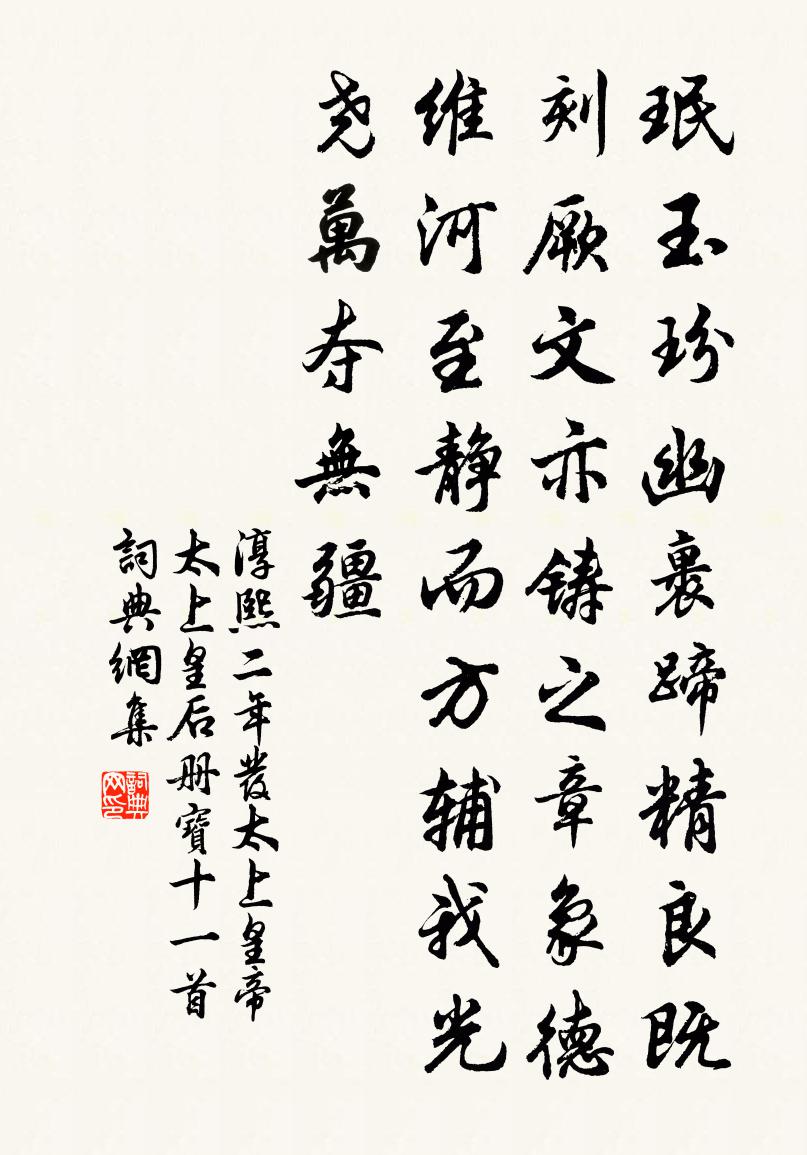 珉玉玢豳裹蹄精良既
刻厥文亦鑄之章象德
維河至静而方輔我光
尧萬寿無疆
淳熙二年發太上皇帝
太上皇后册寶十一首
詞典網集
詞典网印